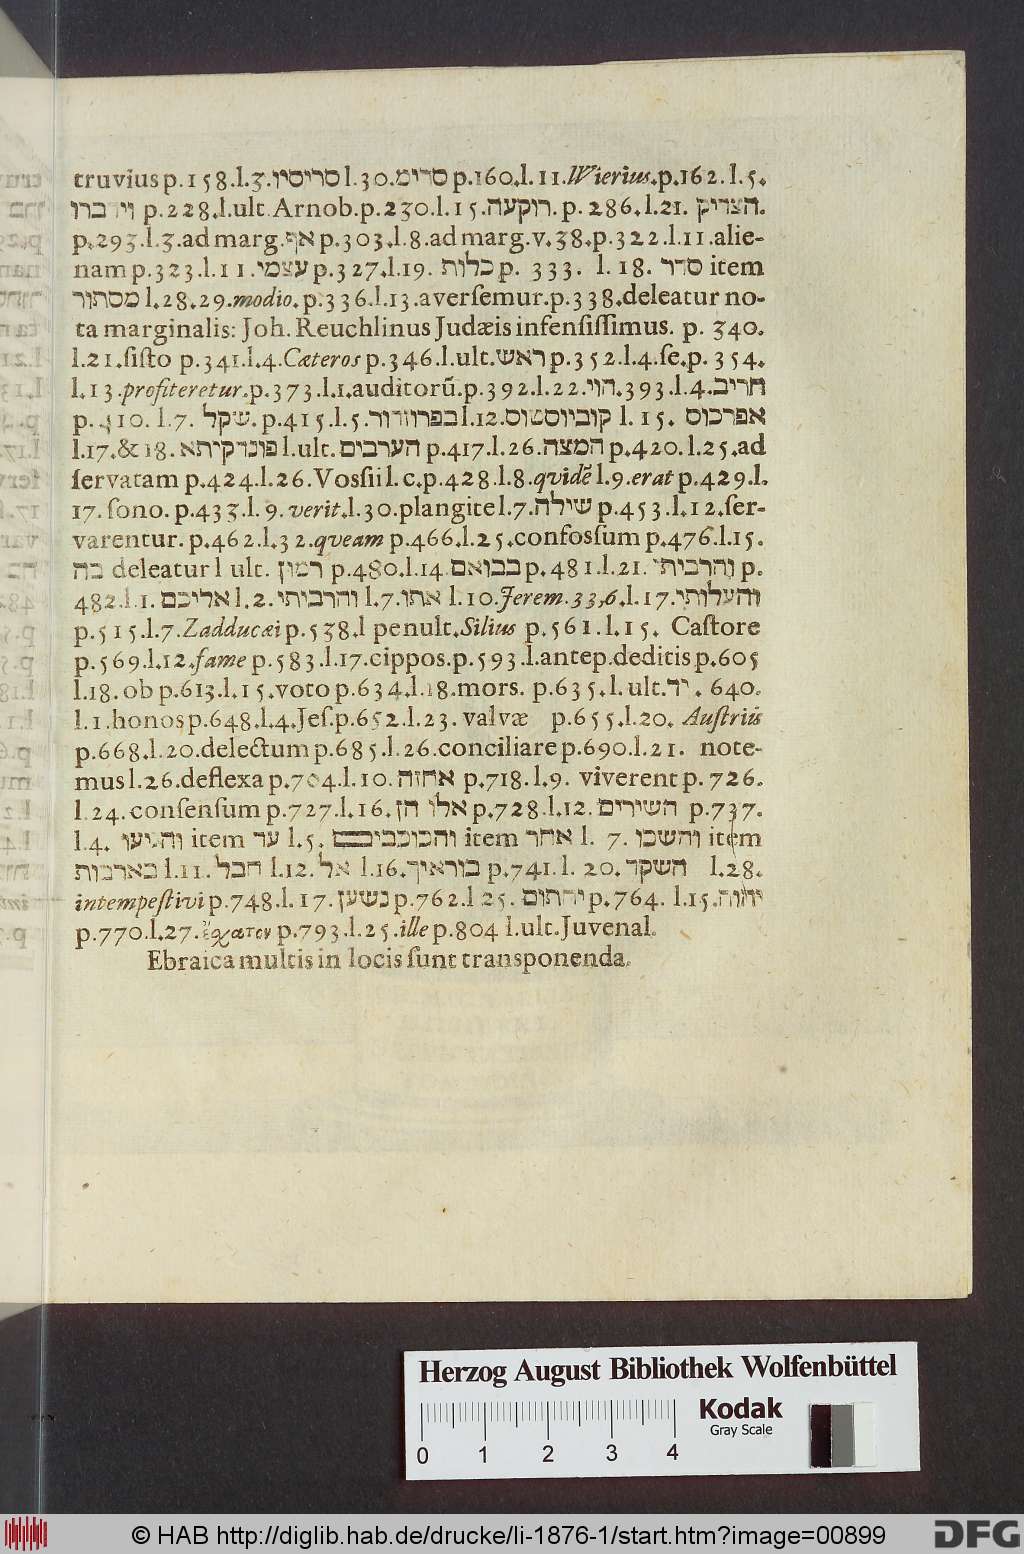 truvius p. 158. l. 3. סריסין l. 30. סרימ p. 160. l. 11. Wierius. p. 162. l. 5.
וידברו p. 228. l. ult. Arnob. p. 230. l. 15. רוקעה. p. 286. l. 21. הצדיק.
p. 293. l. 3. ad marg. אף p. 303. l. 8. ad marg. v. 38. p. 322. l. 11. alie-
nam p. 323. l. 11. עצמי p. 327. l. 19. כלות p. 333. l. 18. סדר item
מסתור l. 28. 29. modio. p. 336. l. 13. aversemur. p. 338. deleatur no-
ta marginalis: Joh. Reuchlinus Judæis infensissimus. p. 340.
l. 21. sisto p. 341. l. 4. Cæteros p. 346. l. ult. ראש p. 352. l. 4. se. p. 354.
l. 13. profiteretur. p. 373. l. 1. auditorū. p. 392. l. 22. הוי. 393. l. 4. חריב
p. 410. l. 7. שקל. p. 415. l. 5. בפרוזדור l. 12. קוביוסטוס l. 15. אפרכוס
l. 17. & 18. פונדקיתא l. ult. הערבים p. 417. l. 26. המצה p. 420. l. 25. ad
servatam p. 424. l. 26. Vossii l. c. p. 428. l. 8. qvidē l. 9. erat p. 429. l.
17. sono. p. 433. l. 9. verit. l. 30. plangite l. 7. שילה p. 453. l. 12. ser-
varentur. p. 462. l. 32. qveam p. 466. l. 25. confossum p. 476. l. 15.
בה deleatur l ult. רמון p. 480. l. 14. בבואם p. 481. l. 21. והרביתי p.
482. l. 1. אליכם l. 2. והרביתי l. 7. אתו l. 10. Jerem. 33, 6. l. 17. והעלותי
p. 515. l. 7. Zadducæi p. 538. l penult. Silius p. 561. l. 15. Castore
p. 569. l. 12. fame p. 583. l. 17. cippos. p. 593. l. antep. deditis p. 605
l. 18. ob p. 613. l. 15. voto p. 634. l. 18. mors. p. 635. l. ult. יד. 640.
l. 1. honos p. 648. l. 4. Jes. p. 652. l. 23. valvæ p. 655. l. 20. Austriüs
p. 668. l. 20. delectum p. 685. l. 26. conciliare p. 690. l. 21. note-
mus l. 26. deflexa p. 704. l. 10. אחזה p. 718. l. 9. viverent p. 726.
l. 24. consensum p. 727. l. 16. אלו הן p. 728. l. 12. השירים p. 737.
l. 4. והגיעו item עד l. 5. והכוכבים item אחר l. 7. והשכו item
בארבות l. 11. חבל l. 12. אל l. 16. בוראיך p. 741. l. 20. השקד l. 28.
intempestivi p. 748. l. 17. נשען p. 762. l 25. יהתום p. 764. l. 15. יהוה
p. 770. l. 27. p. 793. l. 25. ille p. 804 l. ult. Juvenal.
Ebraica multis in locis sunt transponenda.
Herzog August Bibliothek Wolfenbüttel
Kodak
Gray Scale
0 1 2 3 4
© HAB http://diglib.hab.de/drucke/li-1876-1/start.htm?image=00899
DFG